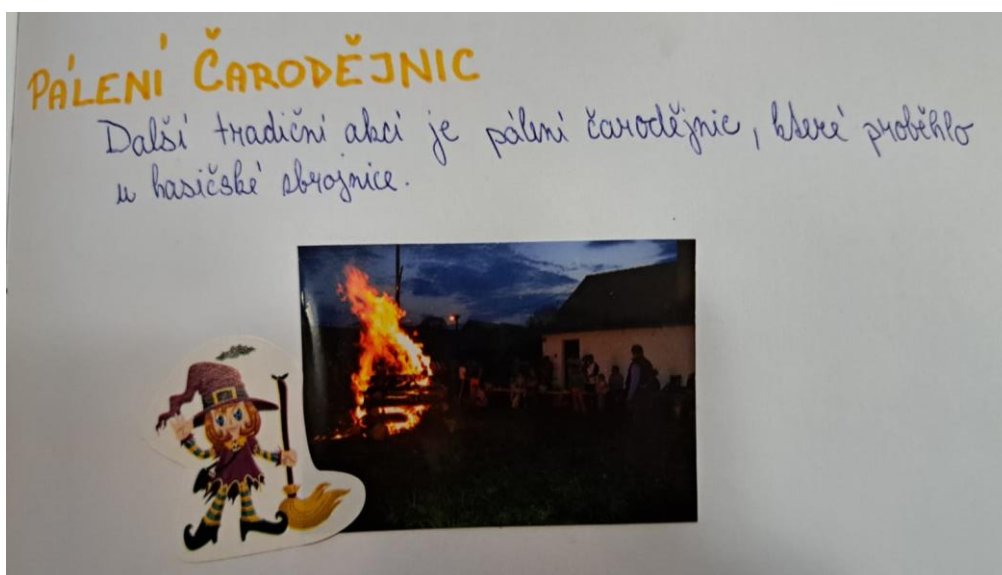 PÁLENÍ ČARODĚJNIC
Další tradiční akcí je pálení čarodějnic, které proběhlo
u hasičské zbrojnice.